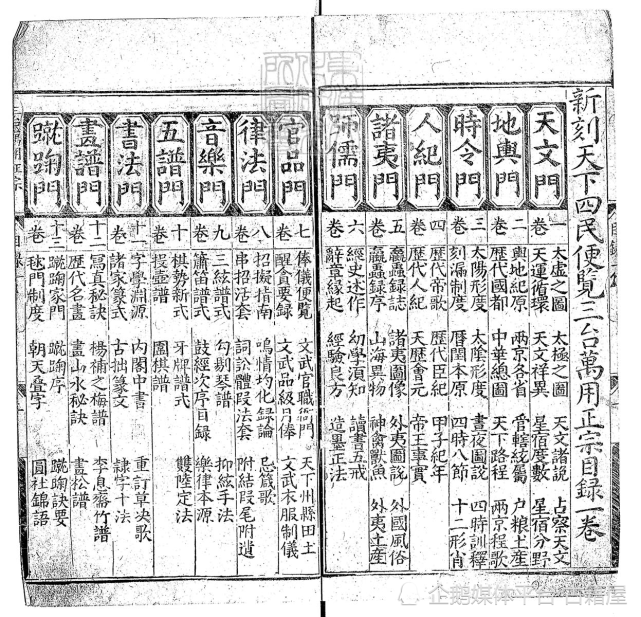 新刻天下四民便覽三台萬用正宗目錄一卷
天文門
一卷
太虛之圖 太極之圖 天文諸說 占察天文
天運循環 天文祥異 星宿度數 星宿分野
地輿門
二卷
輿地紀原 兩京各省 管轄統屬 户粮土産
歷代國都 中華總圖 天下路程 兩京程歌
時令門
三卷
太陽形度 太陰形度 晝夜圖說 四時訓釋
刻漏制度 曆閏本原 四時八節 十二形肖
人紀門
四卷
歷代帝歌 歷代臣紀 甲子紀年
歷代人紀 天歷會元 帝王事實
諸夷門
五卷
臝蟲錄誌 諸夷圖像 外夷圖說 外國風俗
臝蟲錄序 山海異物 神禽獸魚 外夷土産
師儒門
六卷
經史述作 幼學須知 讀書五戒
辭章緣起 經驗良方 造墨正法
官品門
七卷
俸儀便覽 文武官職衙門 天下州縣田土
醒貪要錄 文武品級月俸 文武衣服制儀
律法門
八卷
招擬指南 鳴情均化錄論 忌箴歌
串招活套 詞訟體段活套 附結段尾附遺
音樂門
九卷
三絃譜式 勾剔琴譜 抑絃手法
簫笛譜式 鼓經次序目錄 樂律本源
五譜門
十卷
棋勢新式 牙牌譜式 雙陸定法
投壺譜 圍棋譜
書法門
十一卷
字學淵源 内閣中書 重訂草決歌
諸家篆式 古拙篆文 隸字十法
畫譜門
十二卷
寫真秘訣 楊補之梅譜 李息齋竹譜
歷代名畫 畫山水秘訣 畫松譜
蹴踘門
十三卷
蹴踘家門 蹴踘序 蹴踘訣要
毬門制度 朝天叠字 圓社錦語
目錄
企鵝媒體平台 古籍屋